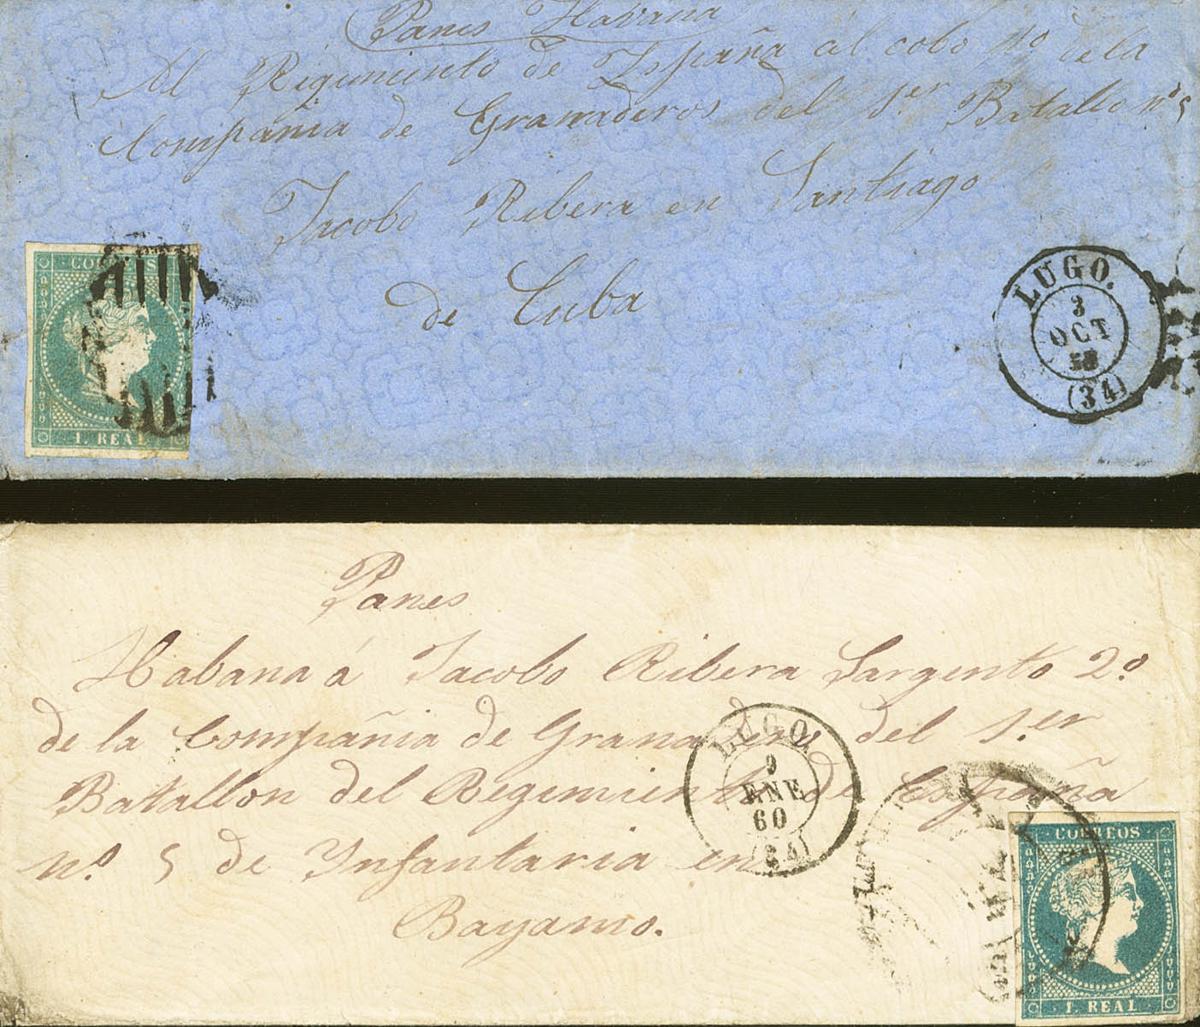 Panes Habana
Al Rigimiento de España al cobo 1º de la
Compania de Granaderos del 1er Batallo nº 5
Jacobo Ribera en Santiago
de Cuba
CORREOS
1. REAL
LUGO.
3
OCT
(34)
Panes
Habana á Jacobo Ribera Sargento 2º
de la Compañia de Granaderos del 1.er
Batallon del Regimiento de España
nº 5 de Infantaria en
Bayamo.
LUGO.
9
ENE
60
(34)
CORREOS
1. REAL